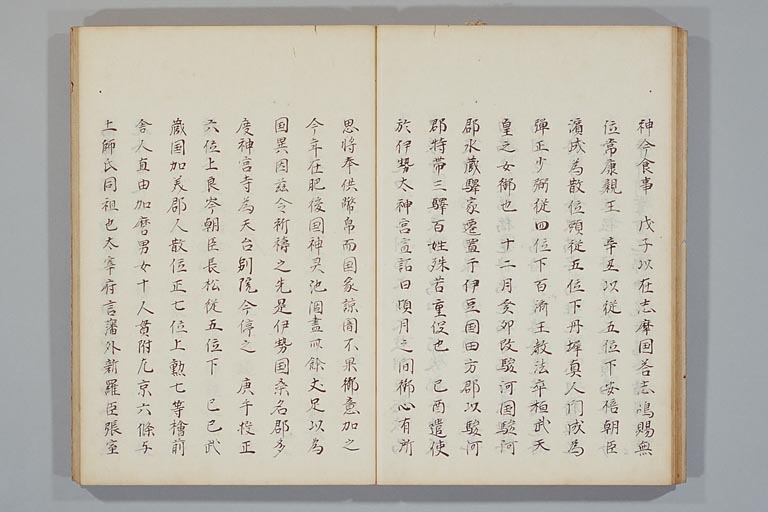 神今食事 戊子以在志摩国荅志嶋賜無
位常康親王 辛丑以従五位下安倍朝臣
濱成為散位頭従五位下丹墀真人門成為
弾正少弼従四位下百済王教法卒桓武天
皇之女御也十二月癸夘改駿河国駿河
郡永蔵驛家遷置于伊豆国田方郡以駿河
郡特帯三驛百姓殊苦重役也 己酉遣使
於伊勢大神宮宣詔曰頃月之間御心有所
思将奉供幣帛而国家諒闇不果御意加之
今年在肥後国神灵池涸盡卌餘丈足以為
国異因玆令祈禱之先是伊勢国桑名郡多
度神宮寺為天台別院今停之 庚午授正
六位上良岑朝臣長松従五位下 己巳武
蔵国加美郡人散位正七位上勲七等檜前
舎人直由加麿男女十人貫附左京六條与
土師氏同祖也太宰府言藩外新羅臣張宝